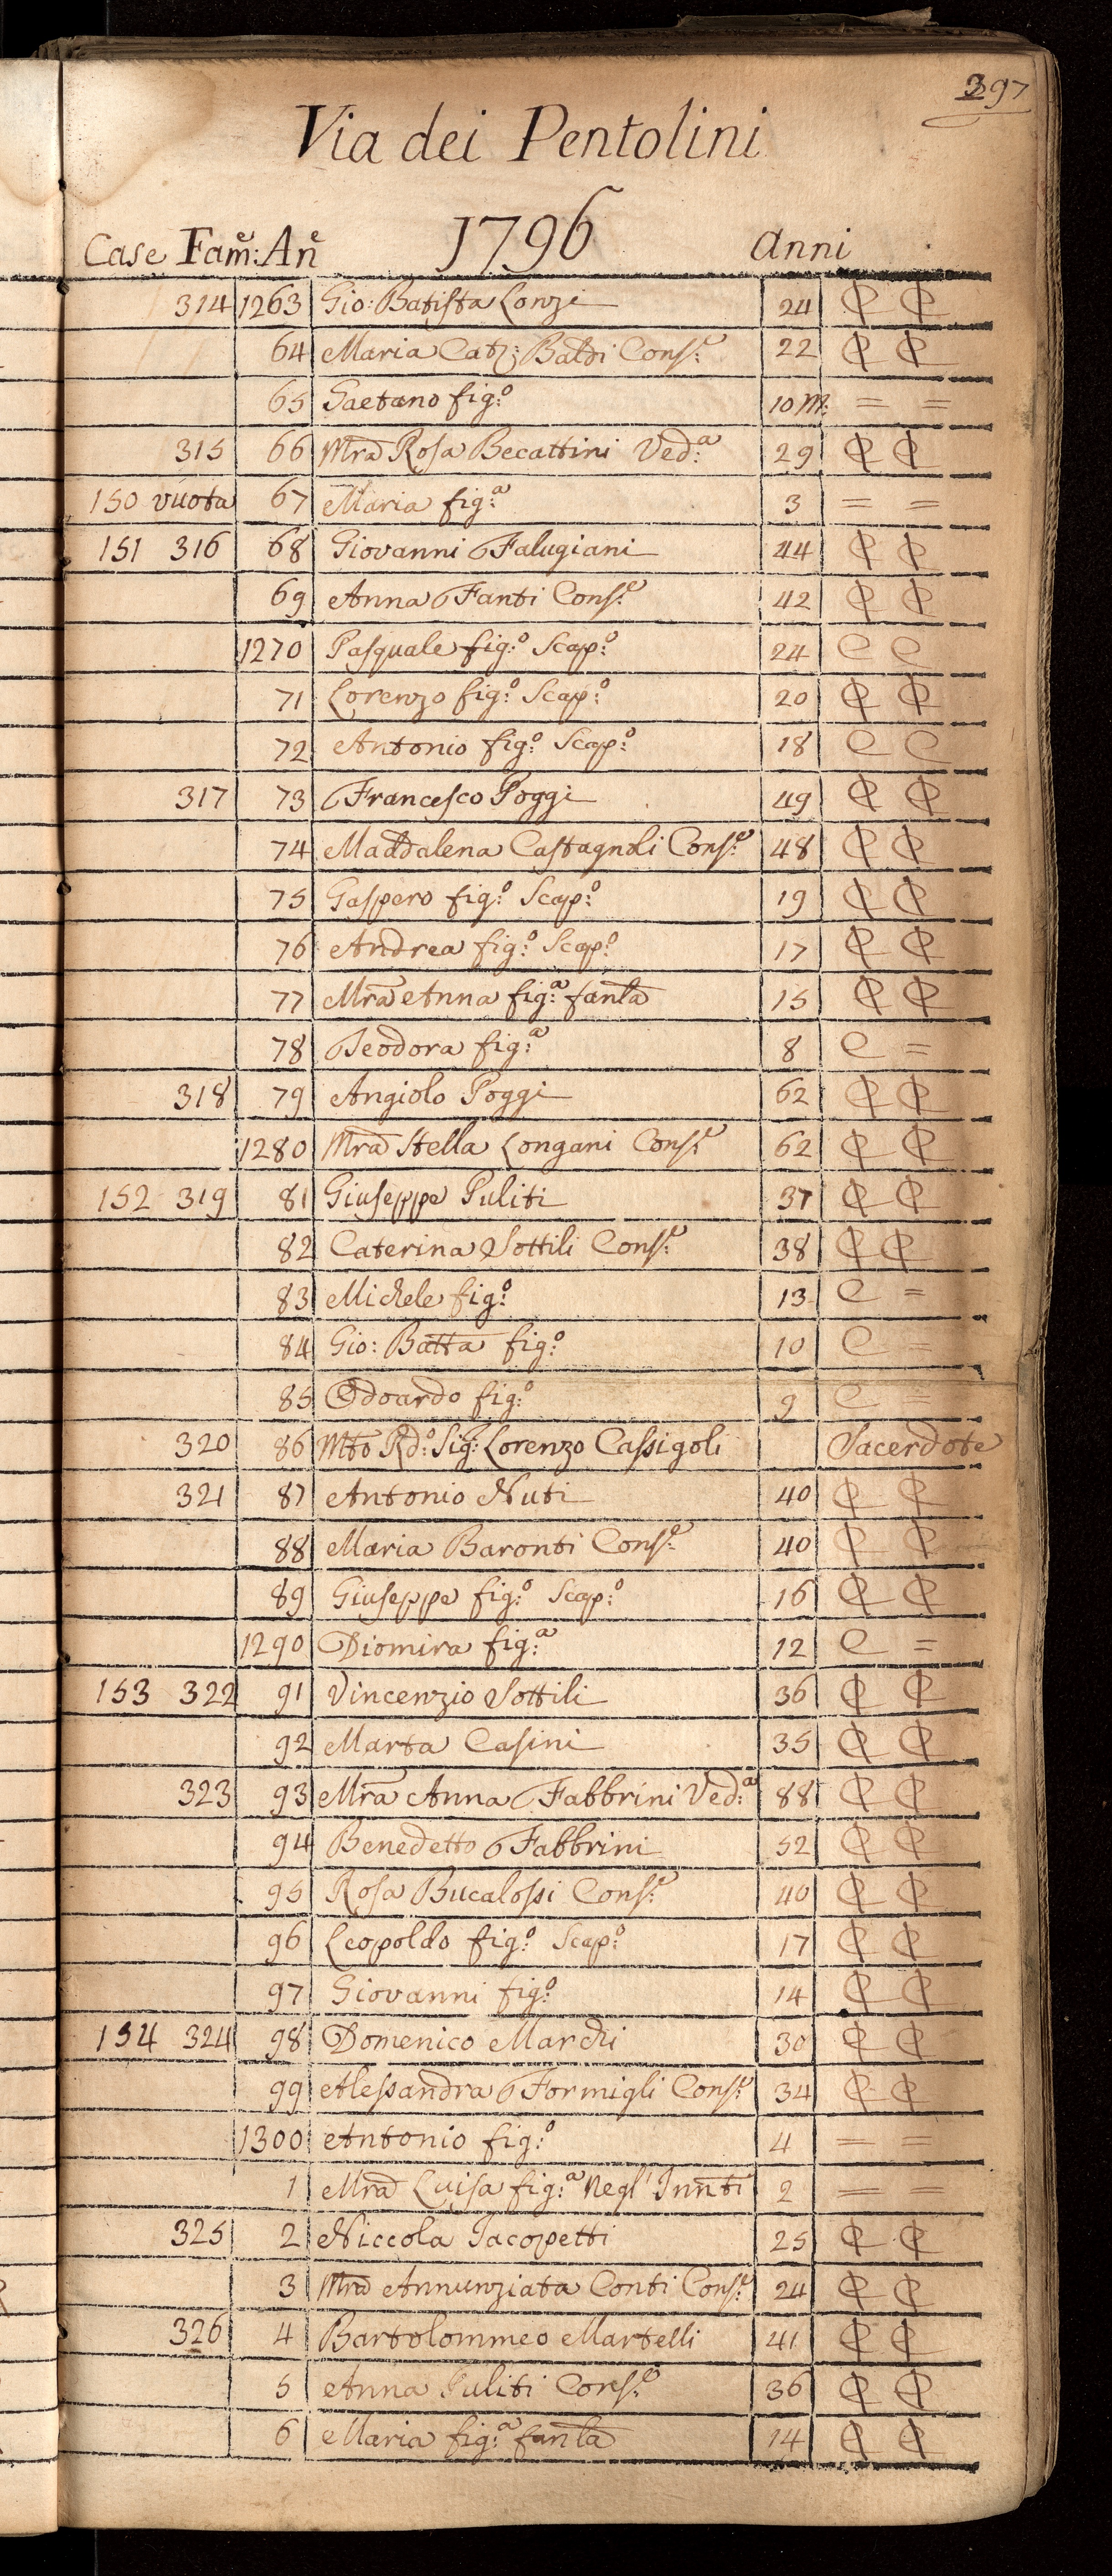 397
Via dei Pentolini
Case Fam:e An:e 1796 Anni
314 1263 Gio: Batista Lonzi 24 ₵ ₵
64 Maria Cat: Baldi Cons:e 22 ₵ ₵
65 Gaetano fig:o 10 m: = =
315 66 Mra Rosa Becattini Ved:a 29 ₵ ₵
150 vuota 67 Maria fig:a 3 = =
151 316 68 Giovanni Falugiani 44 ₵ ₵
69 Anna Fanti Cons:e 42 ₵ ₵
1270 Pasquale fig:o Scap:o 24 C C
71 Lorenzo fig:o Scap:o 20 ₵ ₵
72 Antonio fig:o Scap:o 18 C C
317 73 Francesco Poggi 49 ₵ ₵
74 Maddalena Castagnoli Cons:e 48 ₵ ₵
75 Gaspero fig:o Scap:o 19 ₵ ₵
76 Andrea fig:o Scap:o 17 ₵ ₵
77 Mra Anna fig:a fanla 15 ₵ ₵
78 Teodora fig:a 8 C =
318 79 Angiolo Poggi 62 ₵ ₵
1280 Mra Stella Longani Cons:e 62 ₵ ₵
152 319 81 Giuseppe Puliti 37 ₵ ₵
82 Caterina Sottili Cons:e 38 ₵ ₵
83 Michele fig:o 13 C =
84 Gio: Batta fig:o 10 C =
85 Odoardo fig:o 9 C =
320 86 Mto Rd:o Sig: Lorenzo Cassigoli Sacerdote
321 87 Antonio Nuti 40 ₵ ₵
88 Maria Baronti Cons:e 40 ₵ ₵
89 Giuseppe fig:o Scap:o 16 ₵ ₵
1290 Diomira fig:a 12 C =
153 322 91 Vincenzio Sottili 36 ₵ ₵
92 Marta Casini 35 ₵ ₵
323 93 Mra Anna Fabbrini Ved:a 88 ₵ ₵
94 Benedetto Fabbrini 52 ₵ ₵
95 Rosa Bucalossi Cons:e 40 ₵ ₵
96 Leopoldo fig:o Scap:o 17 ₵ ₵
97 Giovanni fig:o 14 ₵ ₵
154 324 98 Domenico Marchi 30 ₵ ₵
99 Alessandra Formigli Cons:e 34 ₵ ₵
1300 Antonio fig:o 4 = =
1 Mra Luisa fig:a Negl' Innti 2 = =
325 2 Niccola Jacopetti 25 ₵ ₵
3 Mra Annunziata Conti Cons:e 24 ₵ ₵
326 4 Bartolommeo Martelli 41 ₵ ₵
5 Anna Puliti Cons:e 36 ₵ ₵
6 Maria fig:a fanla 14 ₵ ₵